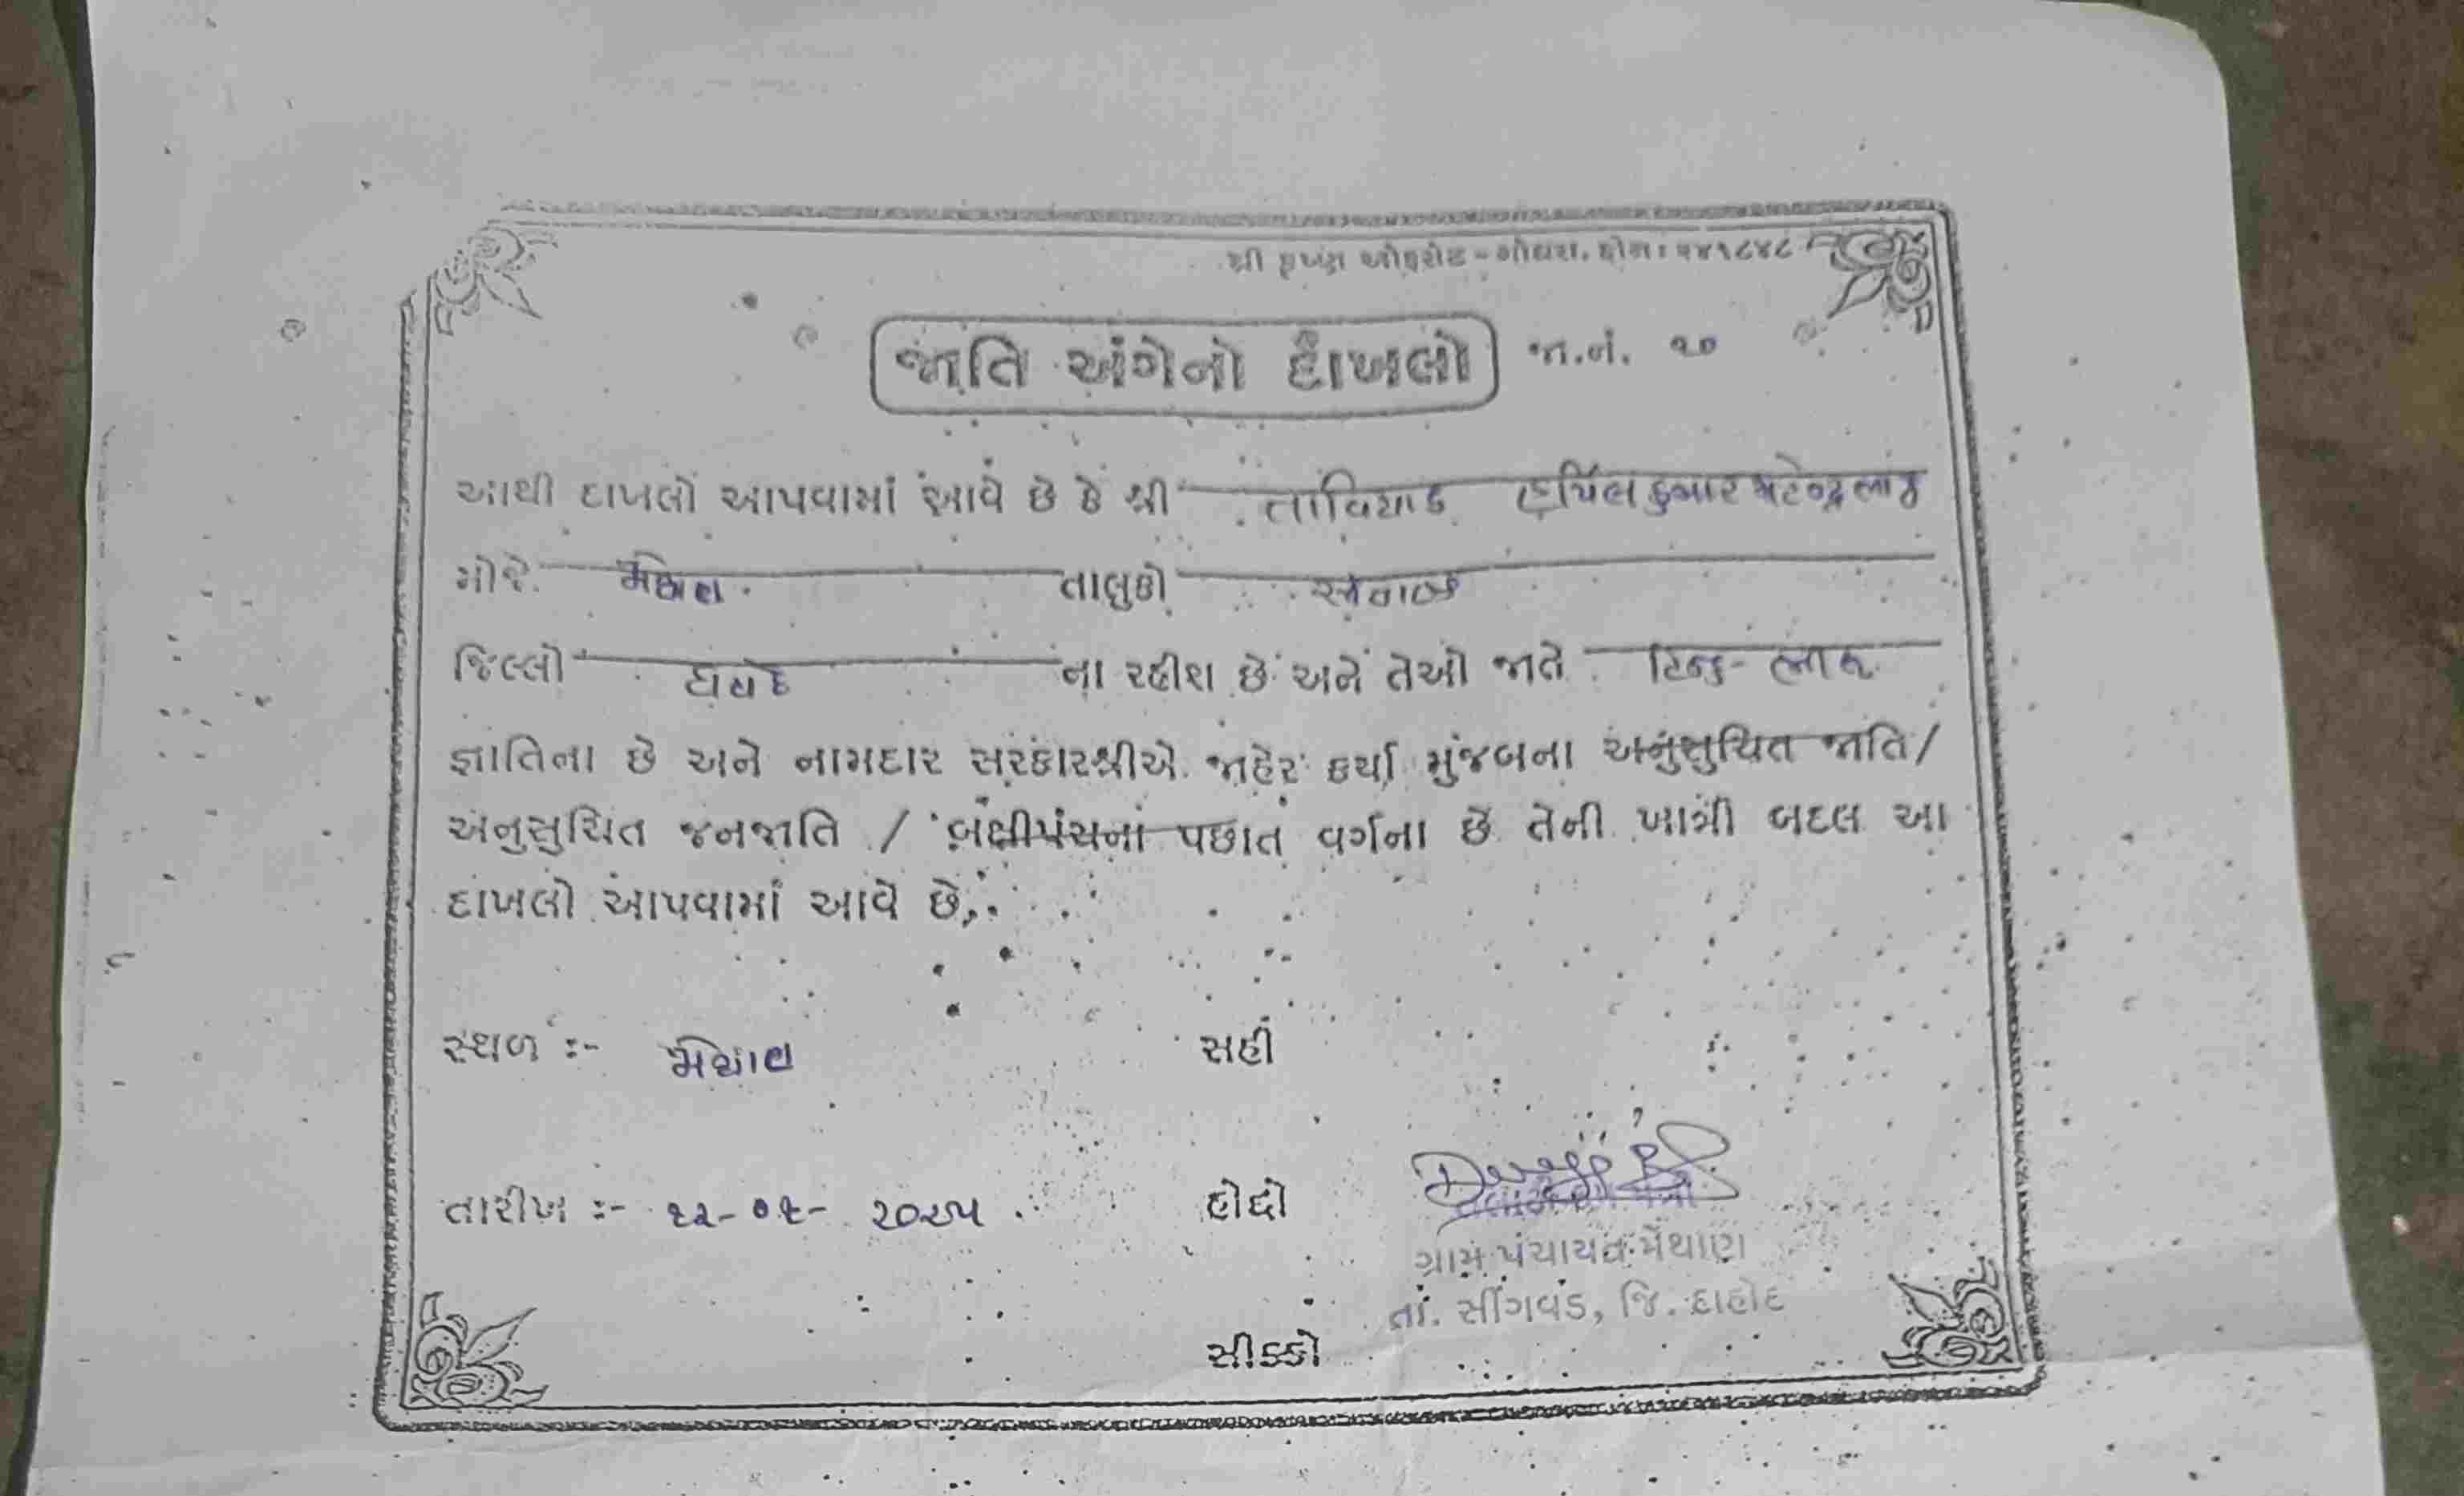 શ્રી કૃષ્ણ ઓફસેટ - ગોધરા. ફોન : ૨૪૧૮૪૮
જાતિ અંગેનો દાખલો જા.નં. ૧૦
આથી દાખલો આપવામાં આવે છે કે શ્રી તાવિયાડ
મોજે. મેથાણ. તાલુકો
જિલ્લો ના રહીશ છે અને તેઓ જાતે હિન્દુ-
જ્ઞાતિના છે અને નામદાર સરકારશ્રીએ જાહેર કર્યા મુંજબના અનુસુચિત જાતિ/
અનુસુચિત જનજાતિ / બક્ષીપંચના પછાત વર્ગના છે તેની ખાત્રી બદલ આ
દાખલો આપવામાં આવે છે.
સ્થળ :- મેથાણ સહી
તારીખ :- ૨૦૨૫ હોદ્દો
ગ્રામ પંચાયત મેથાણ
તા. સીંગવડ, જિ. દાહોદ
સીક્કો